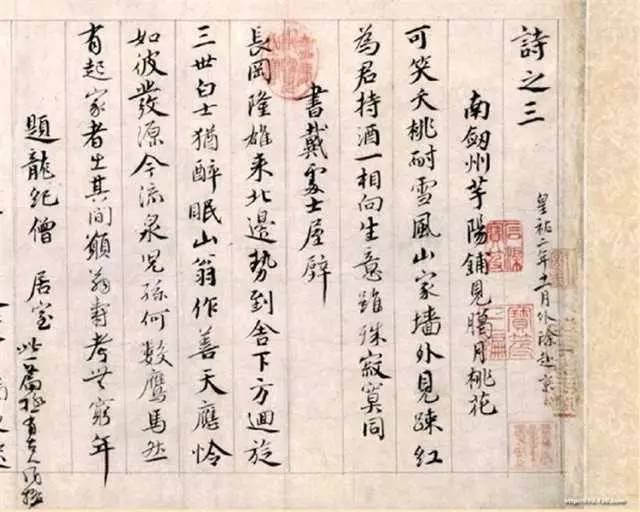 詩之三
皇祐二年十一月外除赴京
南劔州芋陽鋪見臈月桃花
可笑夭桃耐雪風山家墻外見疎紅
為君持酒一相向生意雖殊寂寞同
書戴處士屋壁
長岡隆雄來北邊勢到舍下方迴旋
三世白士猶醉眠山翁作善天應憐
如彼發源今流泉兒孫何數鷹馬然
有起家者出其間願翁壽考無窮年
題龍紀僧居室
此一篇極有古人風格